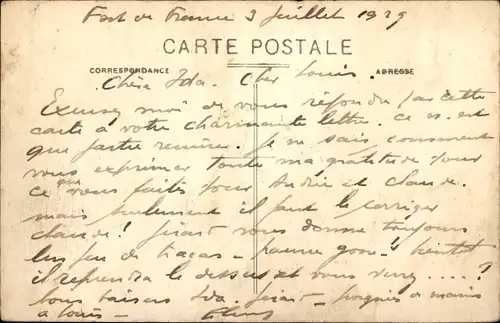 Fort de France 3 Juillet 1929
CARTE POSTALE
CORRESPONDANCE ADRESSE
Chère Ida. Cher Louis.
Excusez moi de vous répondre par cette
carte à votre charmante lettre. ce n'est
que partie remise. je ne sais comment
vous exprimer toute ma gratitude pour
ce que vous faites pour Andrée et Claude.
mais seulement il faut le corriger
Claude! vous donne toujours
un peu de tracas - pauvre bientôt
il reprendra le dessus et vous verrez ....?
bons baisers Ida. - poignée de mains
à Louis -